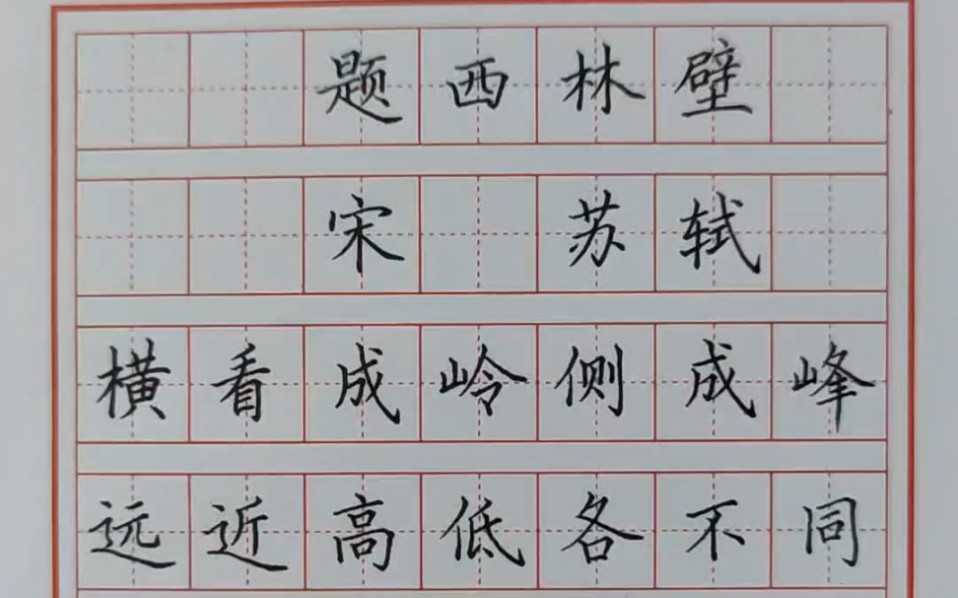 题西林壁
宋 苏轼
横看成岭侧成峰
远近高低各不同